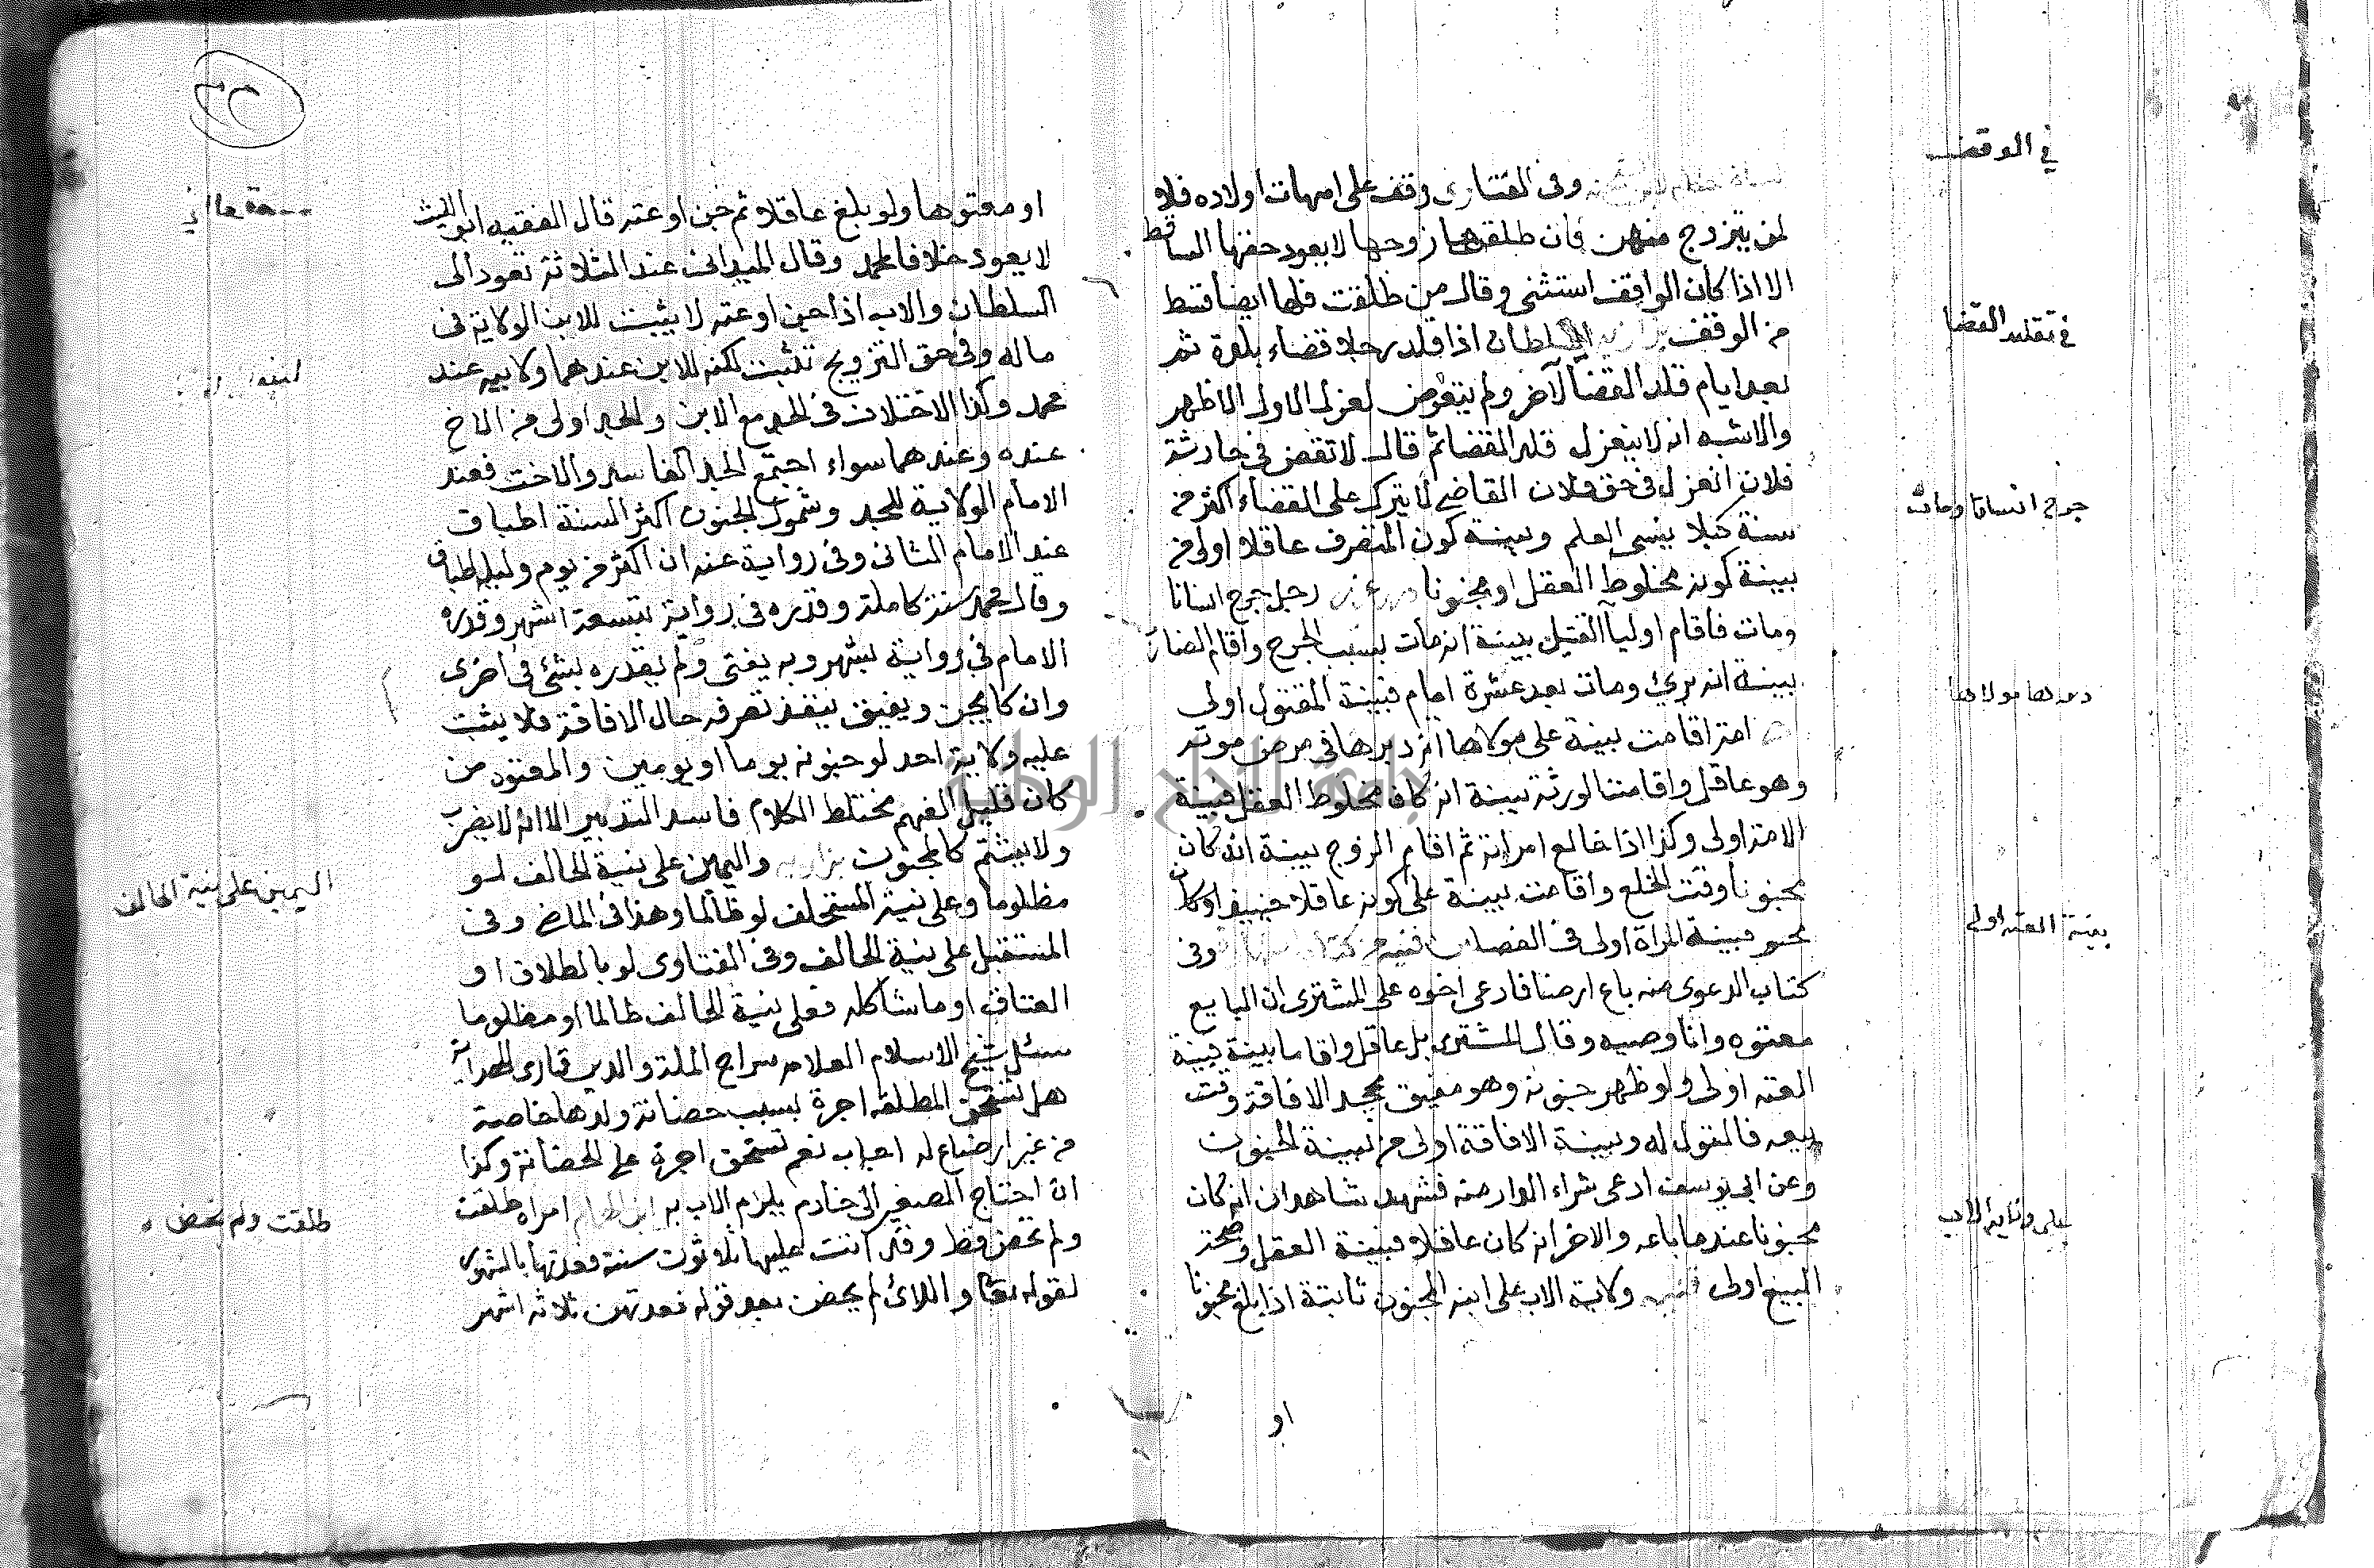 في الوقف
وفى الفتاوى وقف على امهات اولاده فلا
لمن يتزوج منهن فان طلقها زوجها لا يعود حقها الساقط
الا اذا كان الواقف استثنى وقال من طلقت فلها ايضا قسط
من الوقف السلطان اذا قلد رجلا قضاء بلدة ثم
في تقليد القضا
بعد ايام قلد القضا لآخر ولم يتعرض لعزل الاول الاظهر
والاشبه انه لا ينعزل قلد القضا ثم قال لا تقض في حادثة
فلان انعزل في حق فلان القاضي لا يترك على القضاء اكثر من
جرح انسانا ومات
سنة كيلا ينسى العلم وبينة كون المتصرف عاقلا اولى من
بينة كونه مخلوط العقل او مجنونا رجل جرح انسانا
ومات فاقام اوليآ القتيل بينة انه مات بسبب الجرح واقام الضارب
بينة انه برئ ومات بعد عشرة ايام فبينة المقتول اولى
دبرها مولاها
امة اقامت بينة على مولاها انه دبرها في مرض موته
وهو عاقل واقامت الورثة بينة انه كان مخلوط العقل فبينة
الامة اولى وكذا اذا خالع امراته ثم اقام الزوج بينة انه كان
مجنونا وقت الخلع واقامت بينة على كونه عاقلا حينئذ او كان
فبينة المراة اولى في الفصلين وفى
بينة العته اولى
كتاب الدعوى منه باع ارضا فادعى اخوه على المشترى ان البايع
معتوه وانا وصيه وقال المشترى بل عاقل واقاما بينة فبينة
العته اولى ولو ظهر جنونه وهو مفيق مجحد الافاقة وقت
بيعه فالقول له وبينة الافاقة اولى من بينة الجنون
وعن ابى يوسف ادعى شراء الدار منه فشهد شاهدان انه كان
مجنونا عندما باعه والاخر انه كان عاقلا فبينة العقل وصحة
البيع اولى ولاية الاب على ابنه المجنون ثابتة اذا بلغ مجنونا
او
او معتوها ولو بلغ عاقلا ثم جن او عته قال الفقيه ابو الليث
لا يعود خلافا لمحمد وقال الميدانى عند الثلاثة تعود الى
السلطان والاب اذا جن او عته لا يثبت للابن الولاية فى
ماله وفى حق التزويج تثبت لكنه للابن عندهما ولابيه عند
محمد وكذا الاختلاف فى الجد مع الابن والجد اولى من الاخ
عنده وعندهما سواء اجتمع الجد الفاسد والاخت فعند
الامام الولاية للجد وشمول الجنون اكثر السنة اطباق
عند الامام الثانى وفى رواية عنه ان اكثر من يوم وليلة اطباق
وقال محمد سنة كاملة وقدره فى رواية بتسعة اشهر وقدره
الامام فى رواية بشهر وبه يفتى ولم يقدره بشئ فى اخرى
وان كان يجن ويفيق ينفذ تصرفه حال الافاقة فلا يثبت
عليه ولاية احد لو جنونه يوما او يومين والمعتوه من
كان قليل الفهم مختلط الكلام فاسد التدبير الا انه لا يضرب
ولا يشتم كالمجنون بزازيه واليمين على نية الحالف لو
اليمين على نية الحالف
مظلوما وعلى نية المستحلف لو ظالما وهذا فى الماضى وفى
المستقبل على نية الحالف وفى الفتاوى لو بالطلاق او
العتاق او ما شاكله فعلى نية الحالف ظالما او مظلوما
سئل شيخ الاسلام العلامه سراج الملة والدين قارى الهداية
هل تستحق المطلقه اجرة بسبب حضانة ولدها خاصة
من غير ارضاع له اجاب نعم تستحق اجرة على الحضانة وكذا
ان احتاج الصغير الى خادم يلزم الاب به امراة طلقت
طلقت ولم تحض
ولم تحض قط وقد اتت عليها ثلاثون سنة فعدتها بالشهور
لقوله تعا واللائى لم يحضن بعد قوله فعدتهن ثلاثه اشهر
جامعة النجاح الوطنية